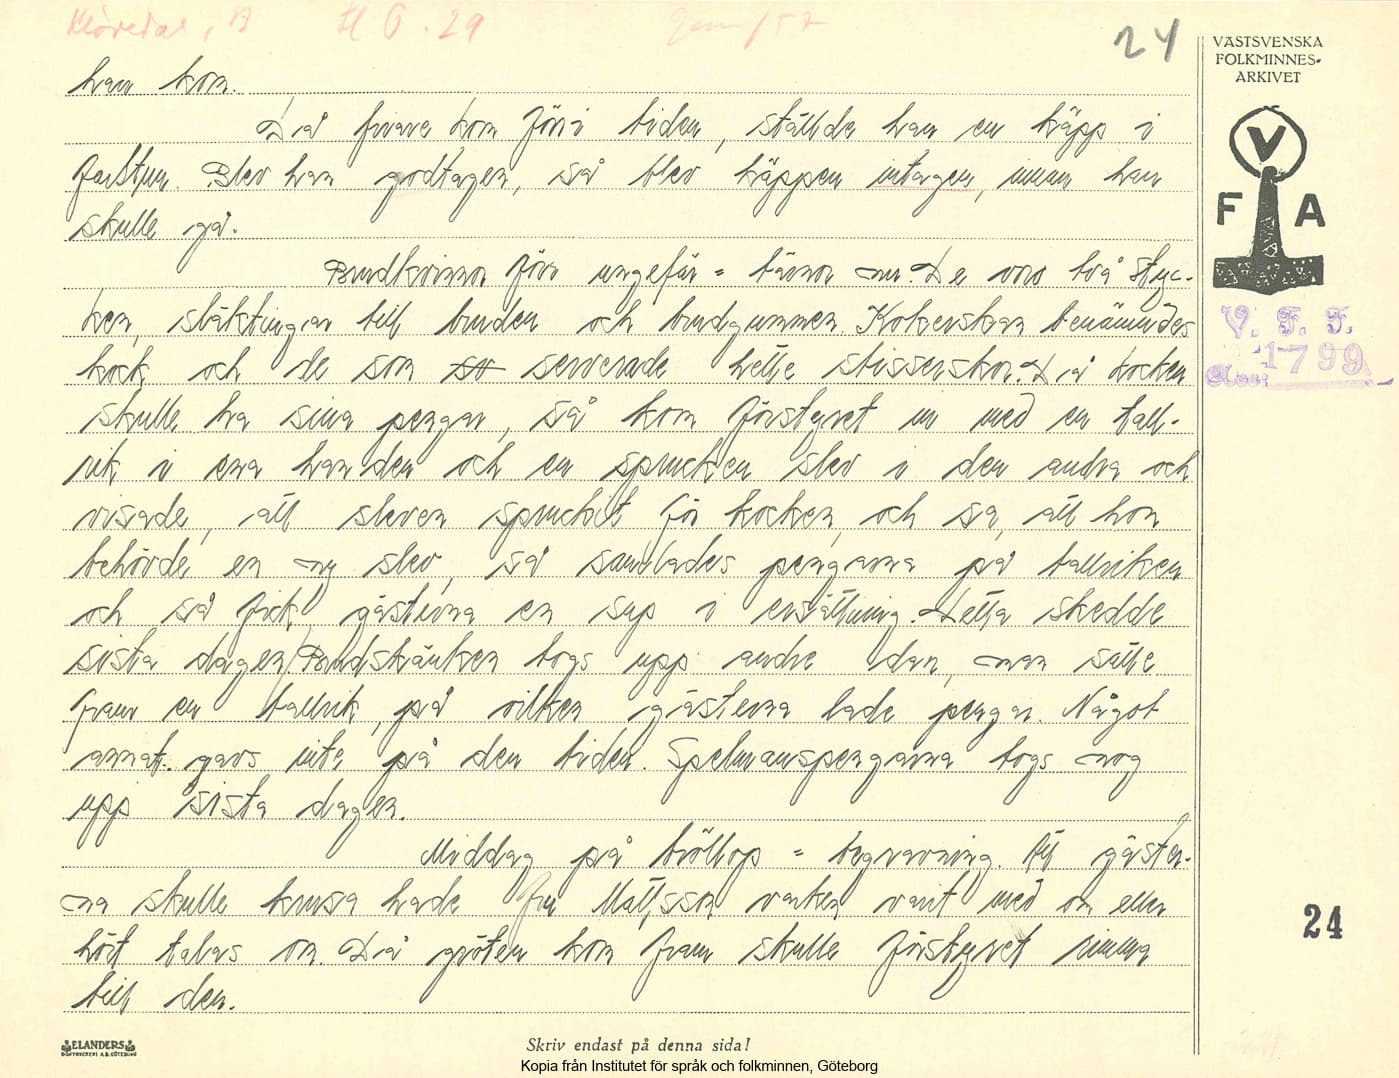 24
VÄSTSVENSKA
FOLKMINNES-
ARKIVET
V
F A
V. F. F.
1799
han kom.
Då friare kom förr i tiden, ställde han en käpp i
farstun. Blev han godtagen, så blev käppen intagen, innan han
skulle gå.
Brudkvinnor förr ungefär = tärnor nu. De voro två styc-
ken, släktingar till bruden och brudgummen. Kokerskan benämndes
kock och de som serverade hette stisserskor. Då kocken
skulle ha sina pengar, så kom förstyret in med en tall-
rik i ena handen och en sprucken slev i den andra och
visade, att sleven spruckit för kocken, och sa, att hon
behövde en ny slev, så samlades pengarna på tallriken
och så fick gästerna en sup i ersättning. Detta skedde
sista dagen. Brudskänken togs upp andre dan, man satte
fram en tallrik, på vilken gästerna lade pengar. Något
annat gavs inte på den tiden. Spelmanspengarna togs nog
upp sista dagen.
Middag på bröllop = begravning. Att gäster-
na skulle krusa hade fru Mattsson varken varit med om eller
hört talas om. Då gröten kom fram skulle förstyret rimma
till den.
24
ELANDERS
BOKTRYCKERI A.B. GÖTEBORG
Skriv endast på denna sida!
Kopia från Institutet för språk och folkminnen, Göteborg